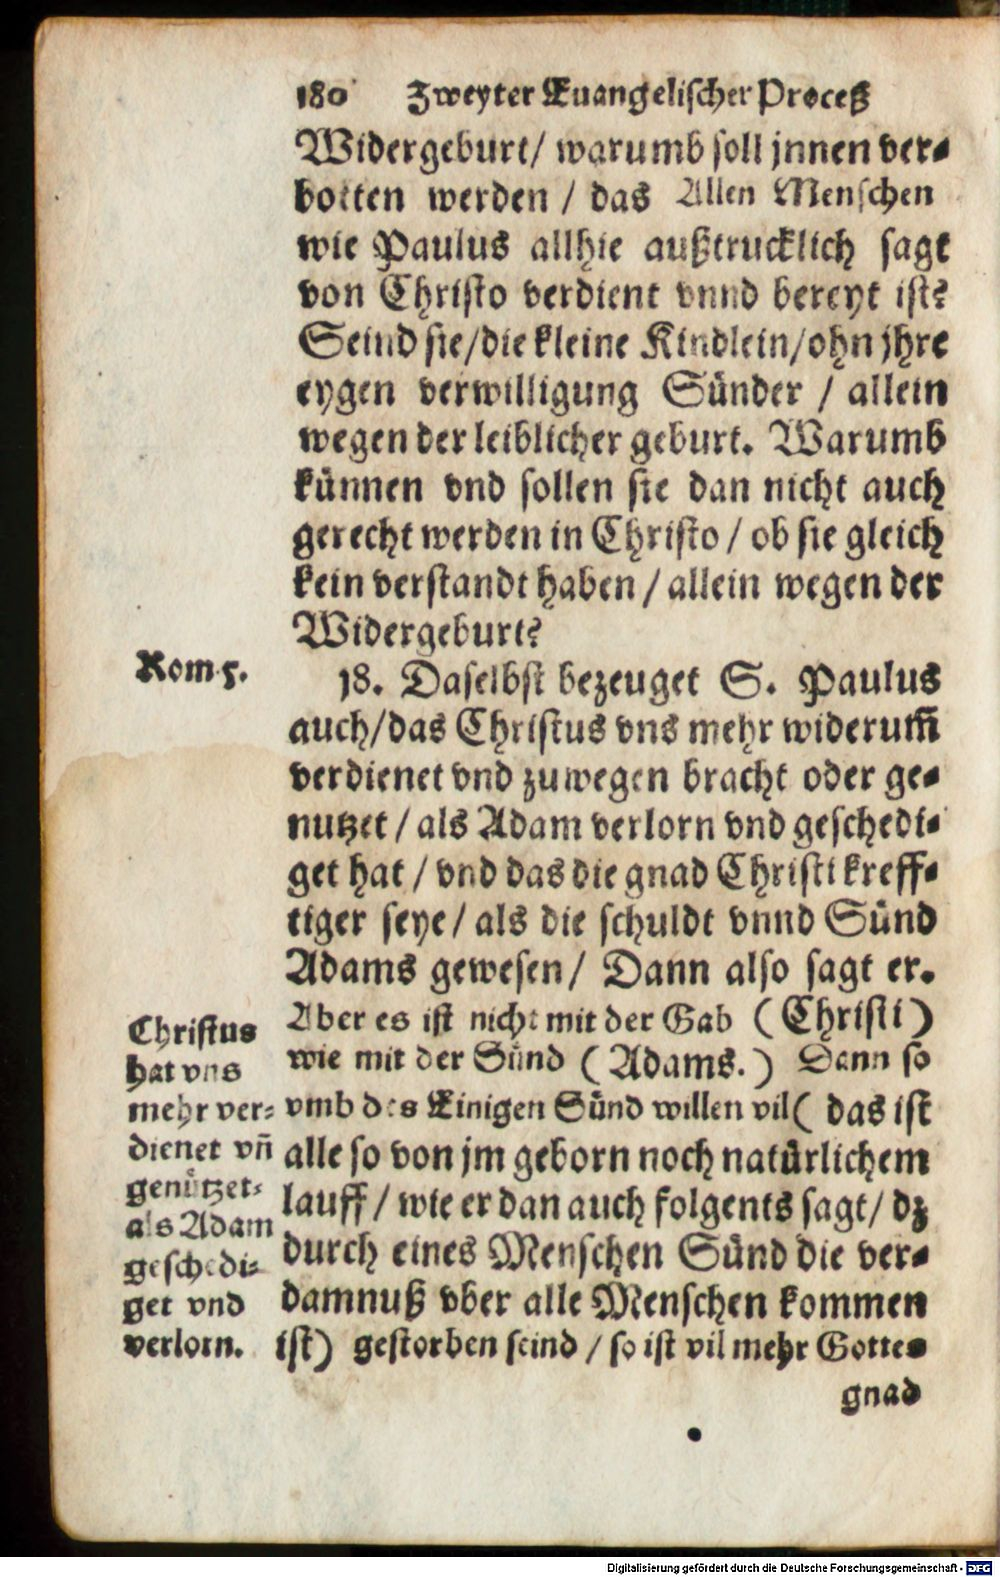 180 Zweyter Euangelischer Proceß
Widergeburt/ warumb soll jnnen ver-
botten werden / das Allen Menschen
wie Paulus allhie außtrucklich sagt
von Christo verdient vnnd bereyt ist?
Seind sie/die kleine Kindlein/ohn jhre
eygen verwilligung Sünder / allein
wegen der leiblicher geburt. Warumb
künnen vnd sollen sie dan nicht auch
gerecht werden in Christo / ob sie gleich
kein verstandt haben / allein wegen der
Widergeburt?
Rom 5.
18. Daselbst bezeuget S. Paulus
auch/das Christus vns mehr widerum̃
verdienet vnd zuwegen bracht oder ge-
nutzet / als Adam verlorn vnd geschedi-
get hat / vnd das die gnad Christi kreff-
tiger seye/ als die schuldt vnnd Sünd
Adams gewesen/ Dann also sagt er.
Aber es ist nicht mit der Gab (Christi)
wie mit der Sünd (Adams.) Dann so
vmb des Einigen Sünd willen vil( das ist
alle so von jm geborn noch natürlichem
lauff / wie er dan auch folgents sagt/ dz
durch eines Menschen Sünd die ver-
damnuß vber alle Menschen kommen
ist) gestorben seind / so ist vil mehr Gottes
Christus
hat vns
mehr ver-
dienet vn̄
genützet-
als Adam
geschedi-
get vnd
verlorn.
gnad
Digitalisierung gefördert durch die Deutsche Forschungsgemeinschaft - DFG